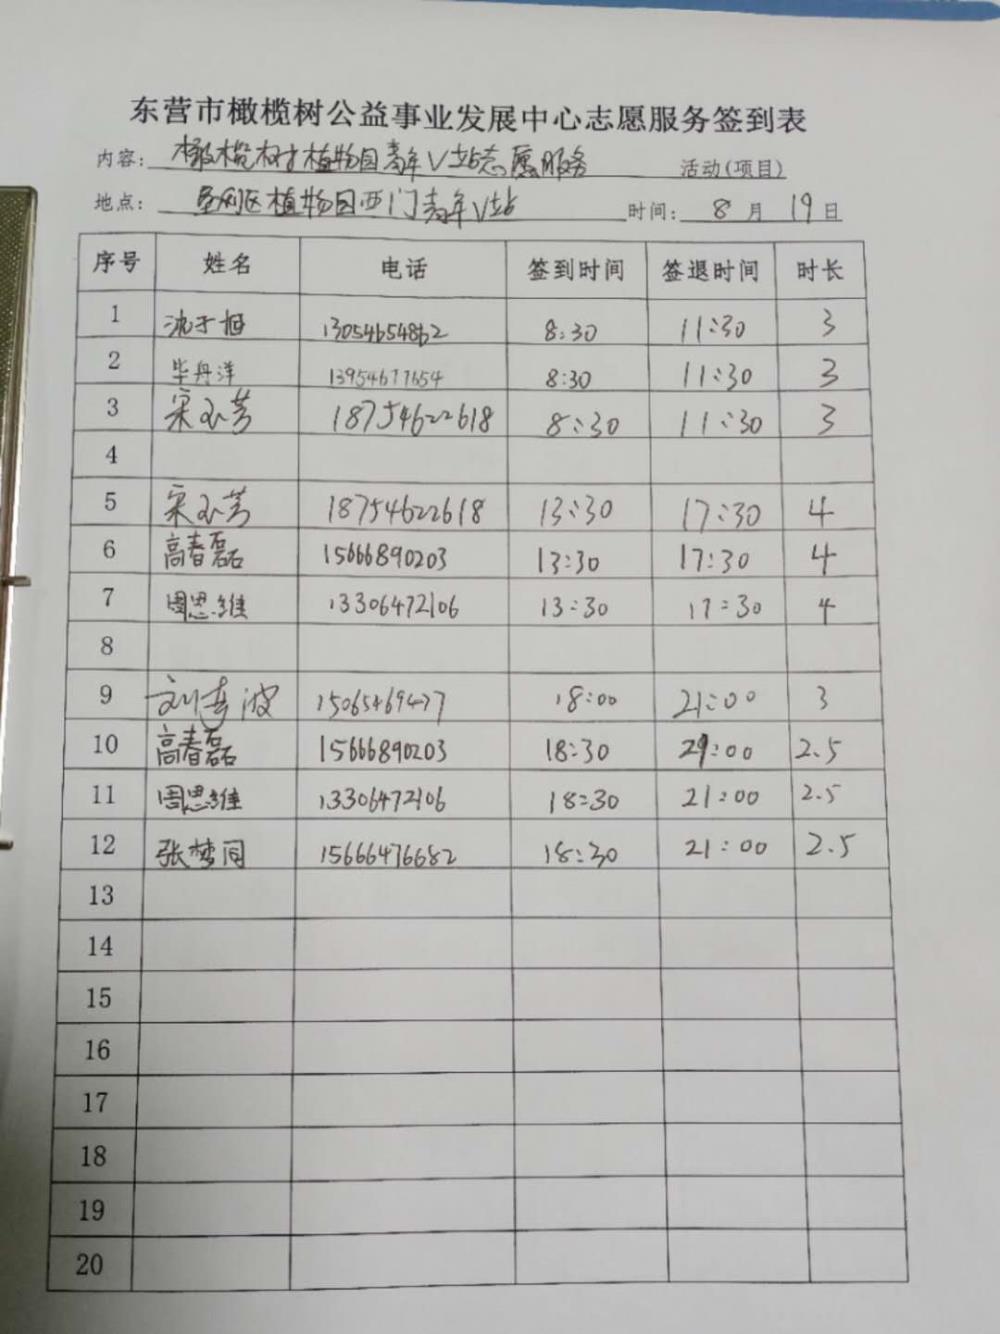 东营市橄榄树公益事业发展中心志愿服务签到表
内容: 橄榄树植物园青年V站志愿服务 活动(项目)
地点: 垦利区植物园西门青年V站 时间: 8月19日
序号 姓名 电话 签到时间 签退时间 时长
1 沈于旭 13054654862 8:30 11:30 3
2 毕丹洋 13954677654 8:30 11:30 3
3 宋玉芳 18754622618 8:30 11:30 3
4
5 宋玉芳 18754622618 13:30 17:30 4
6 高春磊 15666890203 13:30 17:30 4
7 周思维 13306472106 13:30 17:30 4
8
9 刘 波 15065469477 18:00 21:00 3
10 高春磊 15666890203 18:30 21:00 2.5
11 周思维 13306472106 18:30 21:00 2.5
12 张梦同 15666476682 18:30 21:00 2.5
13
14
15
16
17
18
19
20